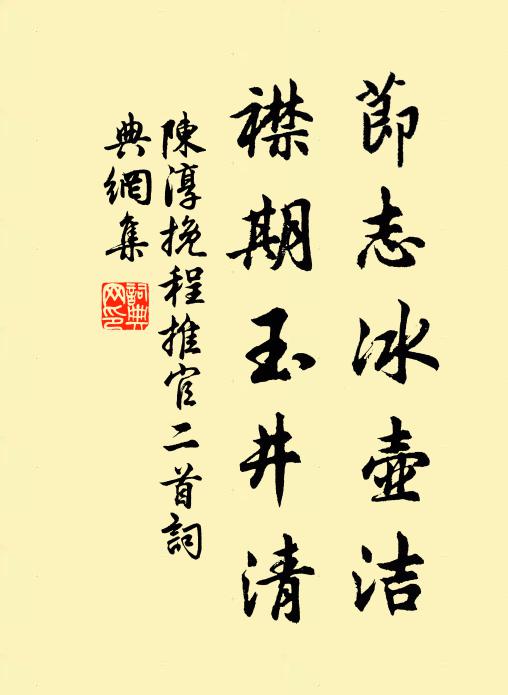 節志冰壺洁
襟期玉井清
陳淳挽程推官二首詞
典網集
詞典网印